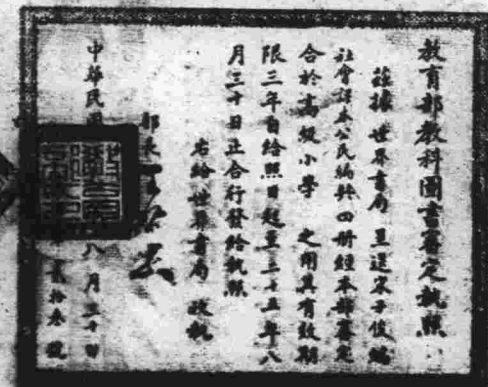 教育部教科圖書審定執照
茲據世界書局呈送宋子俊編
社會課本公民編輯四冊經本部審定
合於高級小學之用其有效期
限三年自給照日起至二十五年八
月三十日止合行發給執照
右給世界書局收執
部長
中華民國 八月三十日
貳拾叁號